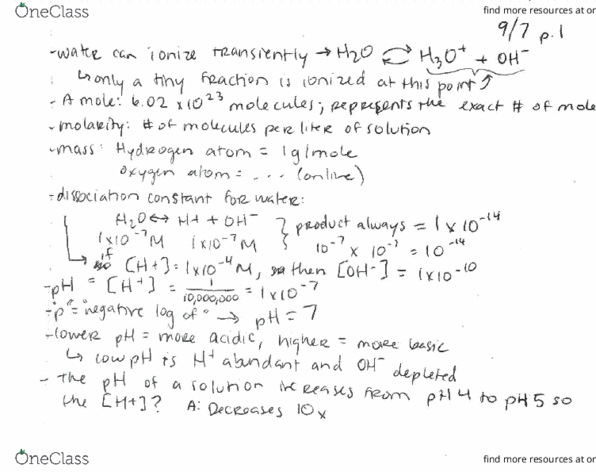 OneClass
find more resources at or
9/7 p.1
-water can ionize transiently → H2O ⇌ H3O+ + OH-
↳ only a tiny fraction is ionized at this point
- A mole: 6.02 x10^23 molecules; represents the exact # of mole
-molarity: # of molecules per liter of solution
-mass: Hydrogen atom = 1g/mole
oxygen atom = .... (online)
-dissociation constant for water:
H2O ↔ H+ + OH- } product always = 1x10^-14
1x10^-7 M 1x10^-7 M } 10^-7 x 10^-7 = 10^-14
if [H+] = 1x10^-4 M, then [OH-] = 1x10^-10
-pH = [H+] = 1/10,000,000 = 1x10^-7
-"p" = "negative log of" → pH = 7
-lower pH = more acidic, higher = more basic
↳ low pH is H+ abundant and OH- depleted
- The pH of a solution increases from pH 4 to pH 5 so
the [H+]? A: Decreases 10x
OneClass
find more resources at or